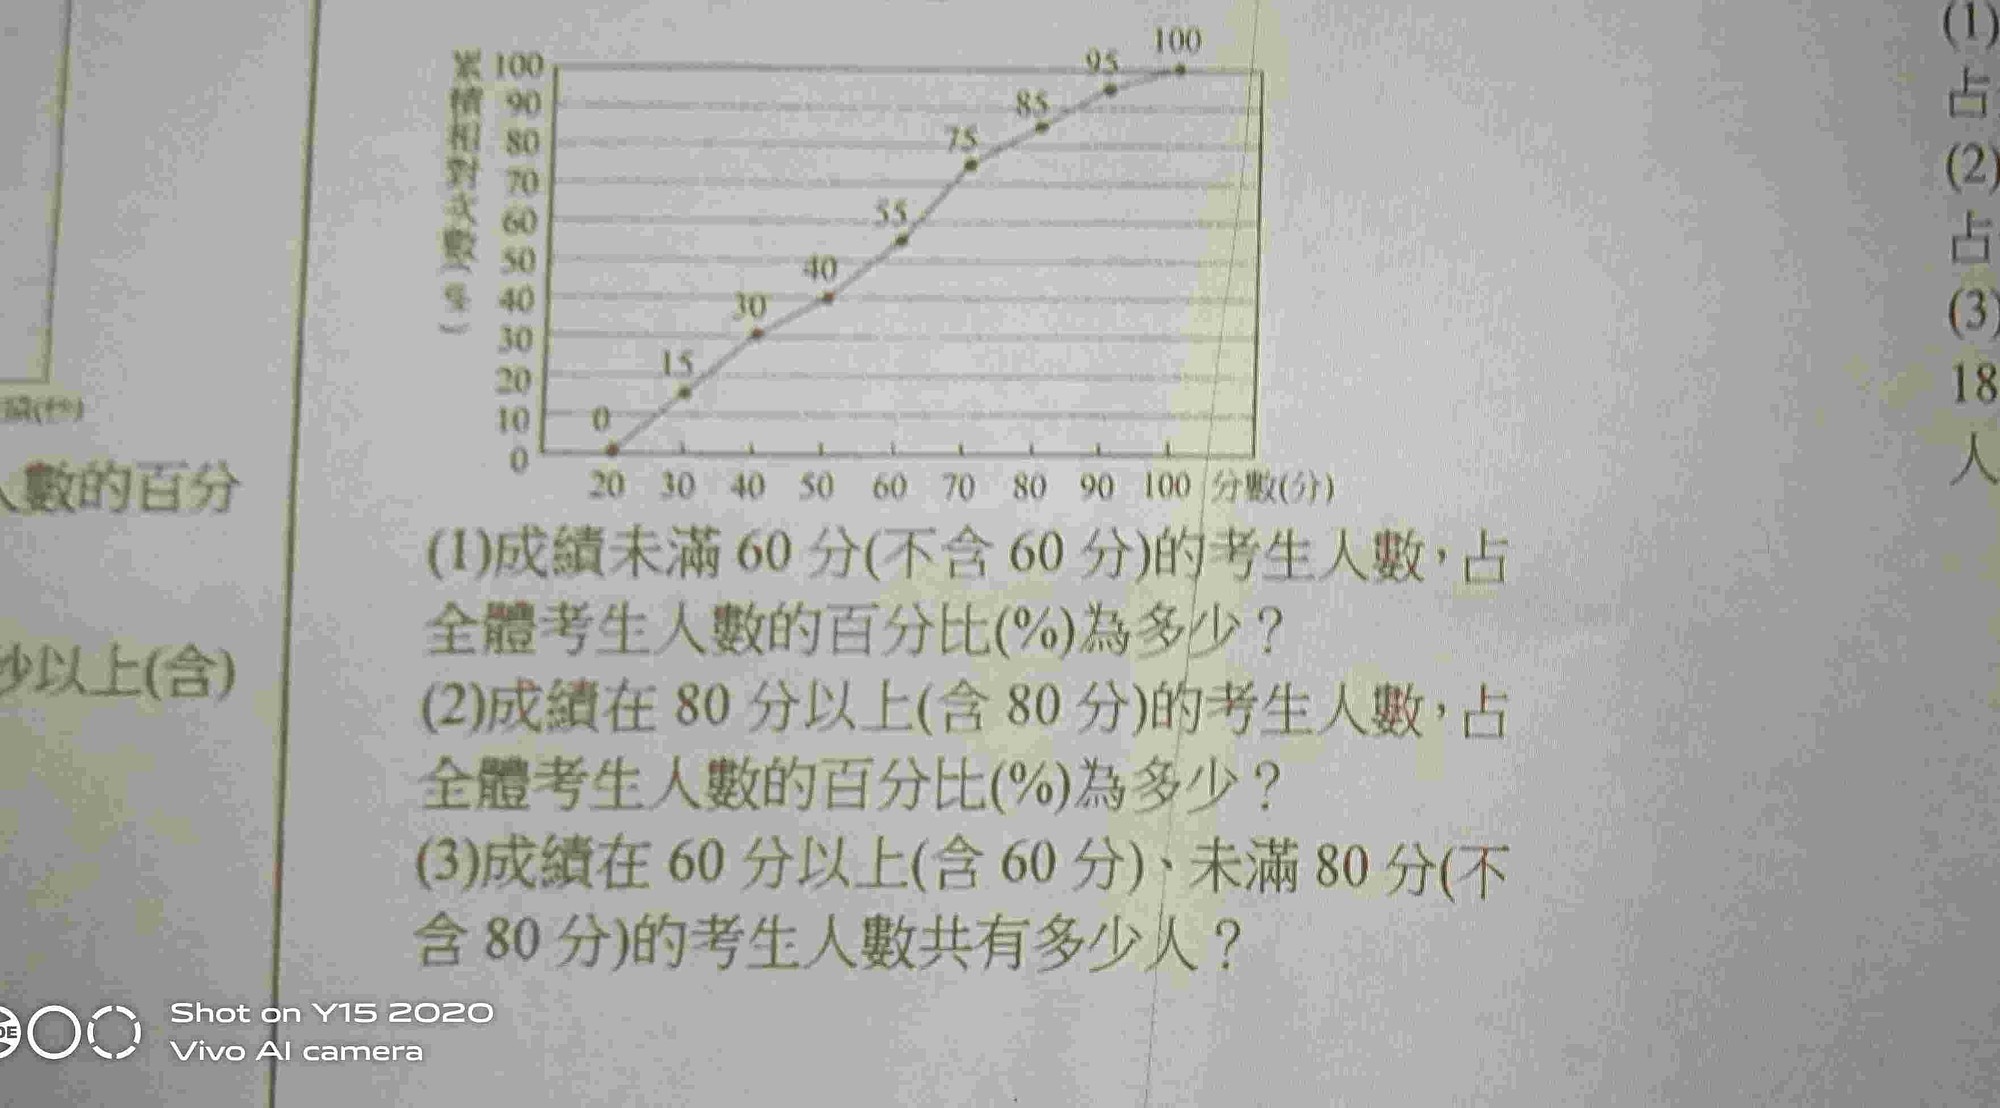 100
95
85
75
55
40
30
15
0
累積相對次數(%)
100
90
80
70
60
50
40
30
20
10
0
20 30 40 50 60 70 80 90 100 分數(分)
(1)成績未滿 60 分(不含 60 分)的考生人數，占
全體考生人數的百分比(%)為多少？
(2)成績在 80 分以上(含 80 分)的考生人數，占
全體考生人數的百分比(%)為多少？
(3)成績在 60 分以上(含 60 分)、未滿 80 分(不
含 80 分)的考生人數共有多少人？
人數的百分
秒以上(含)
(1)
占
(2)
占
(3)
18
人
Shot on Y15 2020
Vivo AI camera